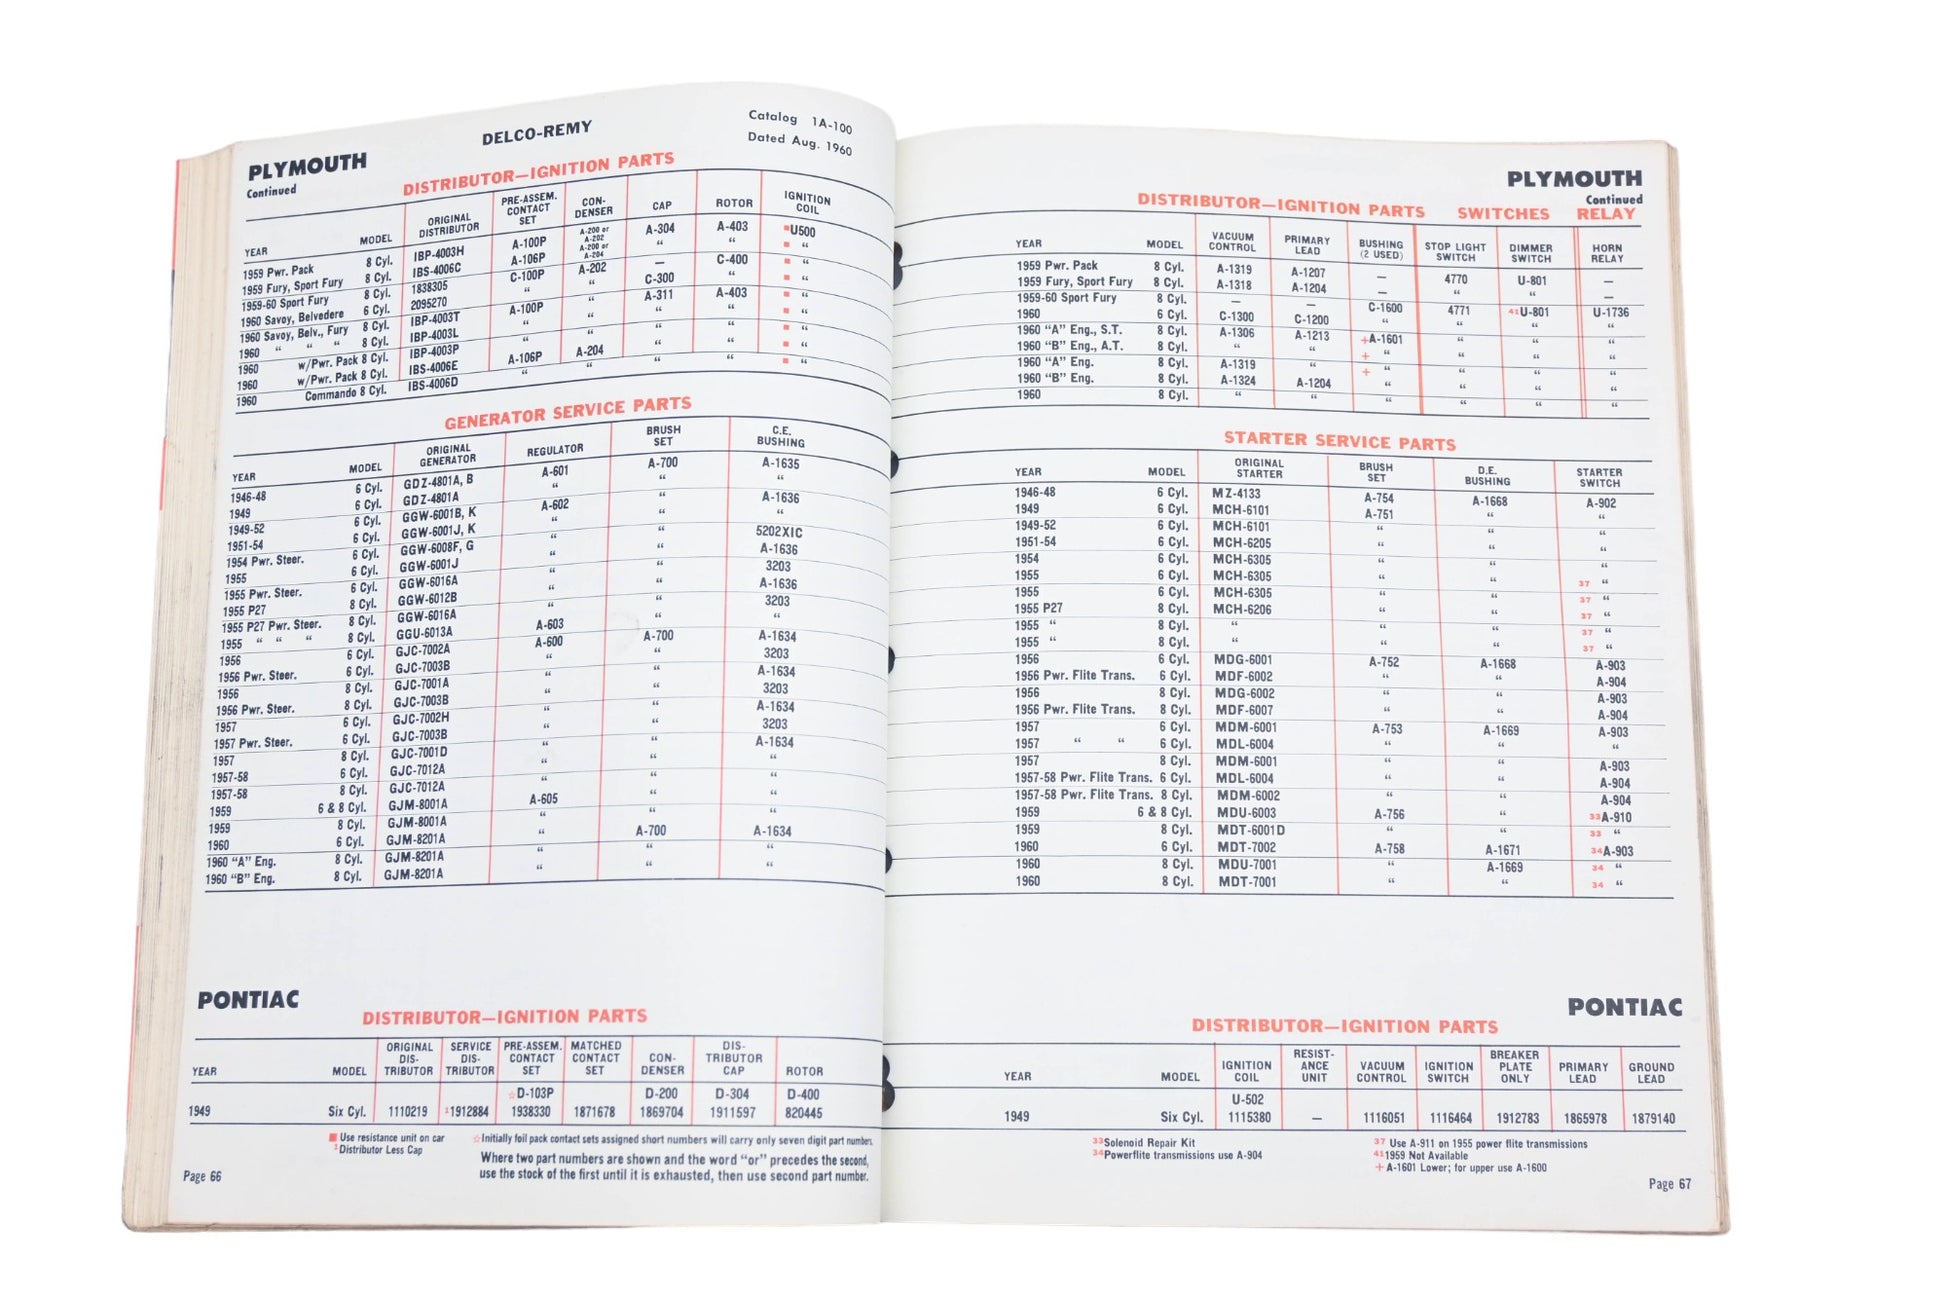 DELCO-REMY
Catalog 1A-100
Dated Aug. 1960
PLYMOUTH
Continued
DISTRIBUTOR—IGNITION PARTS
YEAR MODEL ORIGINAL DISTRIBUTOR PRE-ASSEM. CONTACT SET CON-DENSER CAP ROTOR IGNITION COIL
1959 Pwr. Pack 8 Cyl. IBP-4003H A-100P A-200 or A-202 A-304 A-403 ■U500
1959 Fury, Sport Fury 8 Cyl. IBS-4006C A-106P A-200 or A-204 “ “ ■ “
1959-60 Sport Fury 8 Cyl. 1838305 C-100P A-202 — C-400 ■ “
1960 Savoy, Belvedere 6 Cyl. 2095270 “ “ C-300 “ ■ “
1960 Savoy, Belv., Fury 8 Cyl. IBP-4003T A-100P “ A-311 A-403 ■ “
1960 “ “ “ 8 Cyl. IBP-4003L “ “ “ “ ■ “
1960 w/Pwr. Pack 8 Cyl. IBP-4003P “ “ “ “ ■ “
1960 w/Pwr. Pack 8 Cyl. IBS-4006E A-106P A-204 “ “ ■ “
1960 Commando 8 Cyl. IBS-4006D “ “ “ “ ■ “
GENERATOR SERVICE PARTS
YEAR MODEL ORIGINAL GENERATOR REGULATOR BRUSH SET C.E. BUSHING
1946-48 6 Cyl. GDZ-4801A, B A-601 A-700 A-1635
1949 6 Cyl. GDZ-4801A “ “ “
1949-52 6 Cyl. GGW-6001B, K A-602 “ A-1636
1951-54 6 Cyl. GGW-6001J, K “ “ “
1954 Pwr. Steer. 6 Cyl. GGW-6008F, G “ “ 5202XIC
1955 6 Cyl. GGW-6001J “ “ A-1636
1955 Pwr. Steer. 6 Cyl. GGW-6016A “ “ 3203
1955 P27 8 Cyl. GGW-6012B “ “ A-1636
1955 P27 Pwr. Steer. 8 Cyl. GGW-6016A “ “ 3203
1955 “ “ “ 8 Cyl. GGU-6013A A-603 “ “
1956 6 Cyl. GJC-7002A A-600 A-700 A-1634
1956 Pwr. Steer. 6 Cyl. GJC-7003B “ “ 3203
1956 8 Cyl. GJC-7001A “ “ A-1634
1956 Pwr. Steer. 8 Cyl. GJC-7003B “ “ 3203
1957 6 Cyl. GJC-7002H “ “ A-1634
1957 Pwr. Steer. 6 Cyl. GJC-7003B “ “ 3203
1957 8 Cyl. GJC-7001D “ “ A-1634
1957-58 6 Cyl. GJC-7012A “ “ “
1957-58 8 Cyl. GJC-7012A “ “ “
1959 6 & 8 Cyl. GJM-8001A A-605 “ “
1959 8 Cyl. GJM-8001A “ “ “
1960 6 Cyl. GJM-8201A “ A-700 A-1634
1960 “A” Eng. 8 Cyl. GJM-8201A “ “ “
1960 “B” Eng. 8 Cyl. GJM-8201A “ “ “
PONTIAC
DISTRIBUTOR—IGNITION PARTS
YEAR MODEL ORIGINAL DIS-TRIBUTOR SERVICE DIS-TRIBUTOR PRE-ASSEM. CONTACT SET MATCHED CONTACT SET CON-DENSER DIS-TRIBUTOR CAP ROTOR
☆D-103P D-200 D-304 D-400
1949 Six Cyl. 1110219 ‡1912884 1938330 1871678 1869704 1911597 820445
■ Use resistance unit on car ☆Initially foil pack contact sets assigned short numbers will carry only seven digit part numbers.
‡Distributor Less Cap
Where two part numbers are shown and the word “or” precedes the second,
use the stock of the first until it is exhausted, then use second part number.
Page 66
PLYMOUTH
Continued
DISTRIBUTOR—IGNITION PARTS SWITCHES RELAY
YEAR MODEL VACUUM CONTROL PRIMARY LEAD BUSHING (2 USED) STOP LIGHT SWITCH DIMMER SWITCH HORN RELAY
1959 Pwr. Pack 8 Cyl. A-1319 A-1207 — 4770 U-801 —
1959 Fury, Sport Fury 8 Cyl. A-1318 A-1204 — “ “ —
1959-60 Sport Fury 8 Cyl. — — C-1600 4771 41U-801 U-1736
1960 6 Cyl. C-1300 C-1200 “ “ “ “
1960 “A” Eng., S.T. 8 Cyl. A-1306 A-1213 +A-1601 “ “ “
1960 “B” Eng., A.T. 8 Cyl. “ “ + “ “ “ “
1960 “A” Eng. 8 Cyl. A-1319 “ + “ “ “ “
1960 “B” Eng. 8 Cyl. A-1324 A-1204 “ “ “ “
1960 8 Cyl. “ “ “ “ “ “
STARTER SERVICE PARTS
YEAR MODEL ORIGINAL STARTER BRUSH SET D.E. BUSHING STARTER SWITCH
1946-48 6 Cyl. MZ-4133 A-754 A-1668 A-902
1949 6 Cyl. MCH-6101 A-751 “ “
1949-52 6 Cyl. MCH-6101 “ “ “
1951-54 6 Cyl. MCH-6205 “ “ “
1954 6 Cyl. MCH-6305 “ “ “
1955 6 Cyl. MCH-6305 “ “ 37 “
1955 6 Cyl. MCH-6305 “ “ 37 “
1955 P27 8 Cyl. MCH-6206 “ “ 37 “
1955 “ 8 Cyl. “ “ “ 37 “
1955 “ 8 Cyl. “ “ “ 37 “
1956 6 Cyl. MDG-6001 A-752 A-1668 A-903
1956 Pwr. Flite Trans. 6 Cyl. MDF-6002 “ “ A-904
1956 8 Cyl. MDG-6002 “ “ A-903
1956 Pwr. Flite Trans. 8 Cyl. MDF-6007 “ “ A-904
1957 6 Cyl. MDM-6001 A-753 A-1669 A-903
1957 “ “ 6 Cyl. MDL-6004 “ “ “
1957 8 Cyl. MDM-6001 “ “ A-903
1957-58 Pwr. Flite Trans. 6 Cyl. MDL-6004 “ “ A-904
1957-58 Pwr. Flite Trans. 8 Cyl. MDM-6002 “ “ A-904
1959 6 & 8 Cyl. MDU-6003 A-756 “ 33A-910
1959 8 Cyl. MDT-6001D “ “ 33 “
1960 6 Cyl. MDT-7002 A-758 A-1671 34A-903
1960 8 Cyl. MDU-7001 “ A-1669 34 “
1960 8 Cyl. MDT-7001 “ “ 34 “
PONTIAC
DISTRIBUTOR—IGNITION PARTS
YEAR MODEL IGNITION COIL RESIST-ANCE UNIT VACUUM CONTROL IGNITION SWITCH BREAKER PLATE ONLY PRIMARY LEAD GROUND LEAD
U-502
1949 Six Cyl. 1115380 — 1116051 1116464 1912783 1865978 1879140
33Solenoid Repair Kit
34Powerflite transmissions use A-904
37 Use A-911 on 1955 power flite transmissions
41 1959 Not Available
+ A-1601 Lower; for upper use A-1600
Page 67